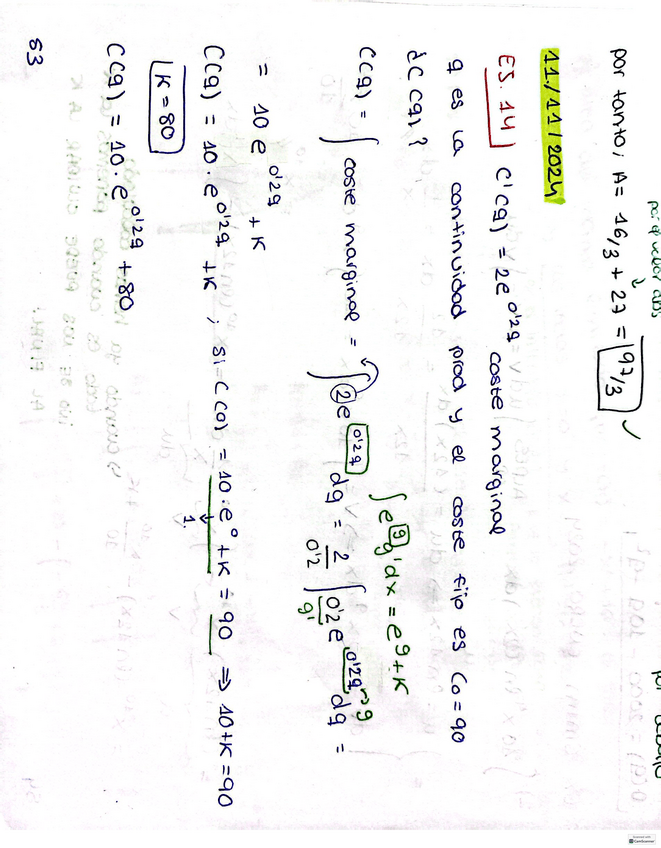 por el valor abs
por tanto; A = 16/3 + 27 = 97/3 ✓
11/11/2024
EJ. 14) C'(q) = 2e^0'2q coste marginal
q es la continuidad prod y el coste fijo es C0 = 90
¿C(q)?
∫ e^g g' dx = e^g + K
C(q) = ∫ coste marginal = ∫ 2e^0'2q dq = 2/0'2 ∫ 0'2 e^0'2q dq =
g' → g
= 10 e^0'2q + K
C(q) = 10 · e^0'2q + K ; Si = C(0) = 10 · e^0 + K = 90 ⇒ 10 + K = 90
1.
K = 80
C(q) = 10 · e^0'2q + 80
53
CamScanner